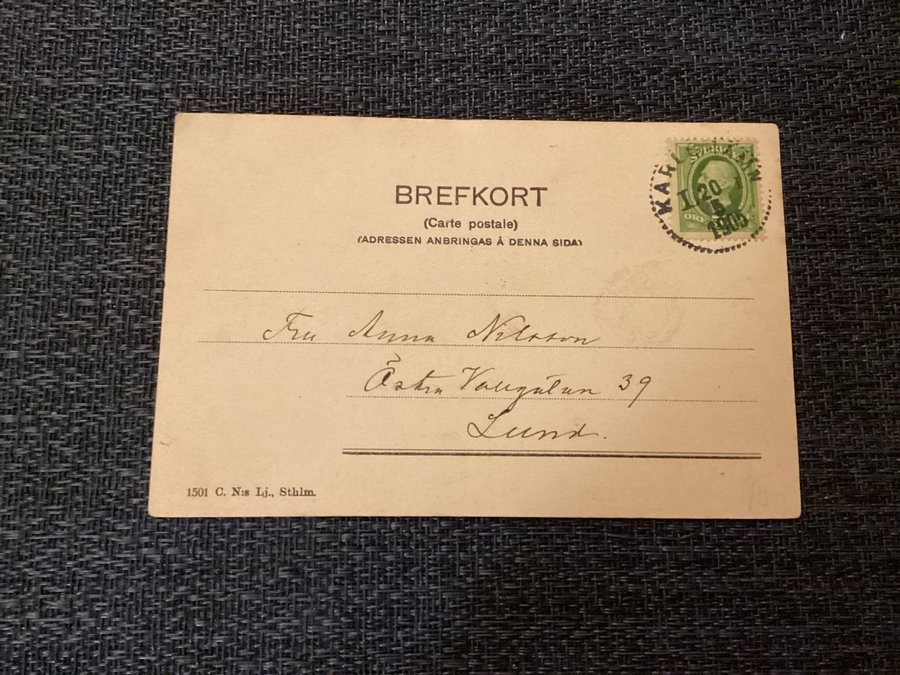 BREFKORT
(Carte postale)
(ADRESSEN ANBRINGAS Å DENNA SIDA)
SVERIGE
ÖRE
I 20
5
1905
Fru Anna Nilsson
Östra Vallgatan 39
Lund.
1501 C. N:s Lj., Sthlm.